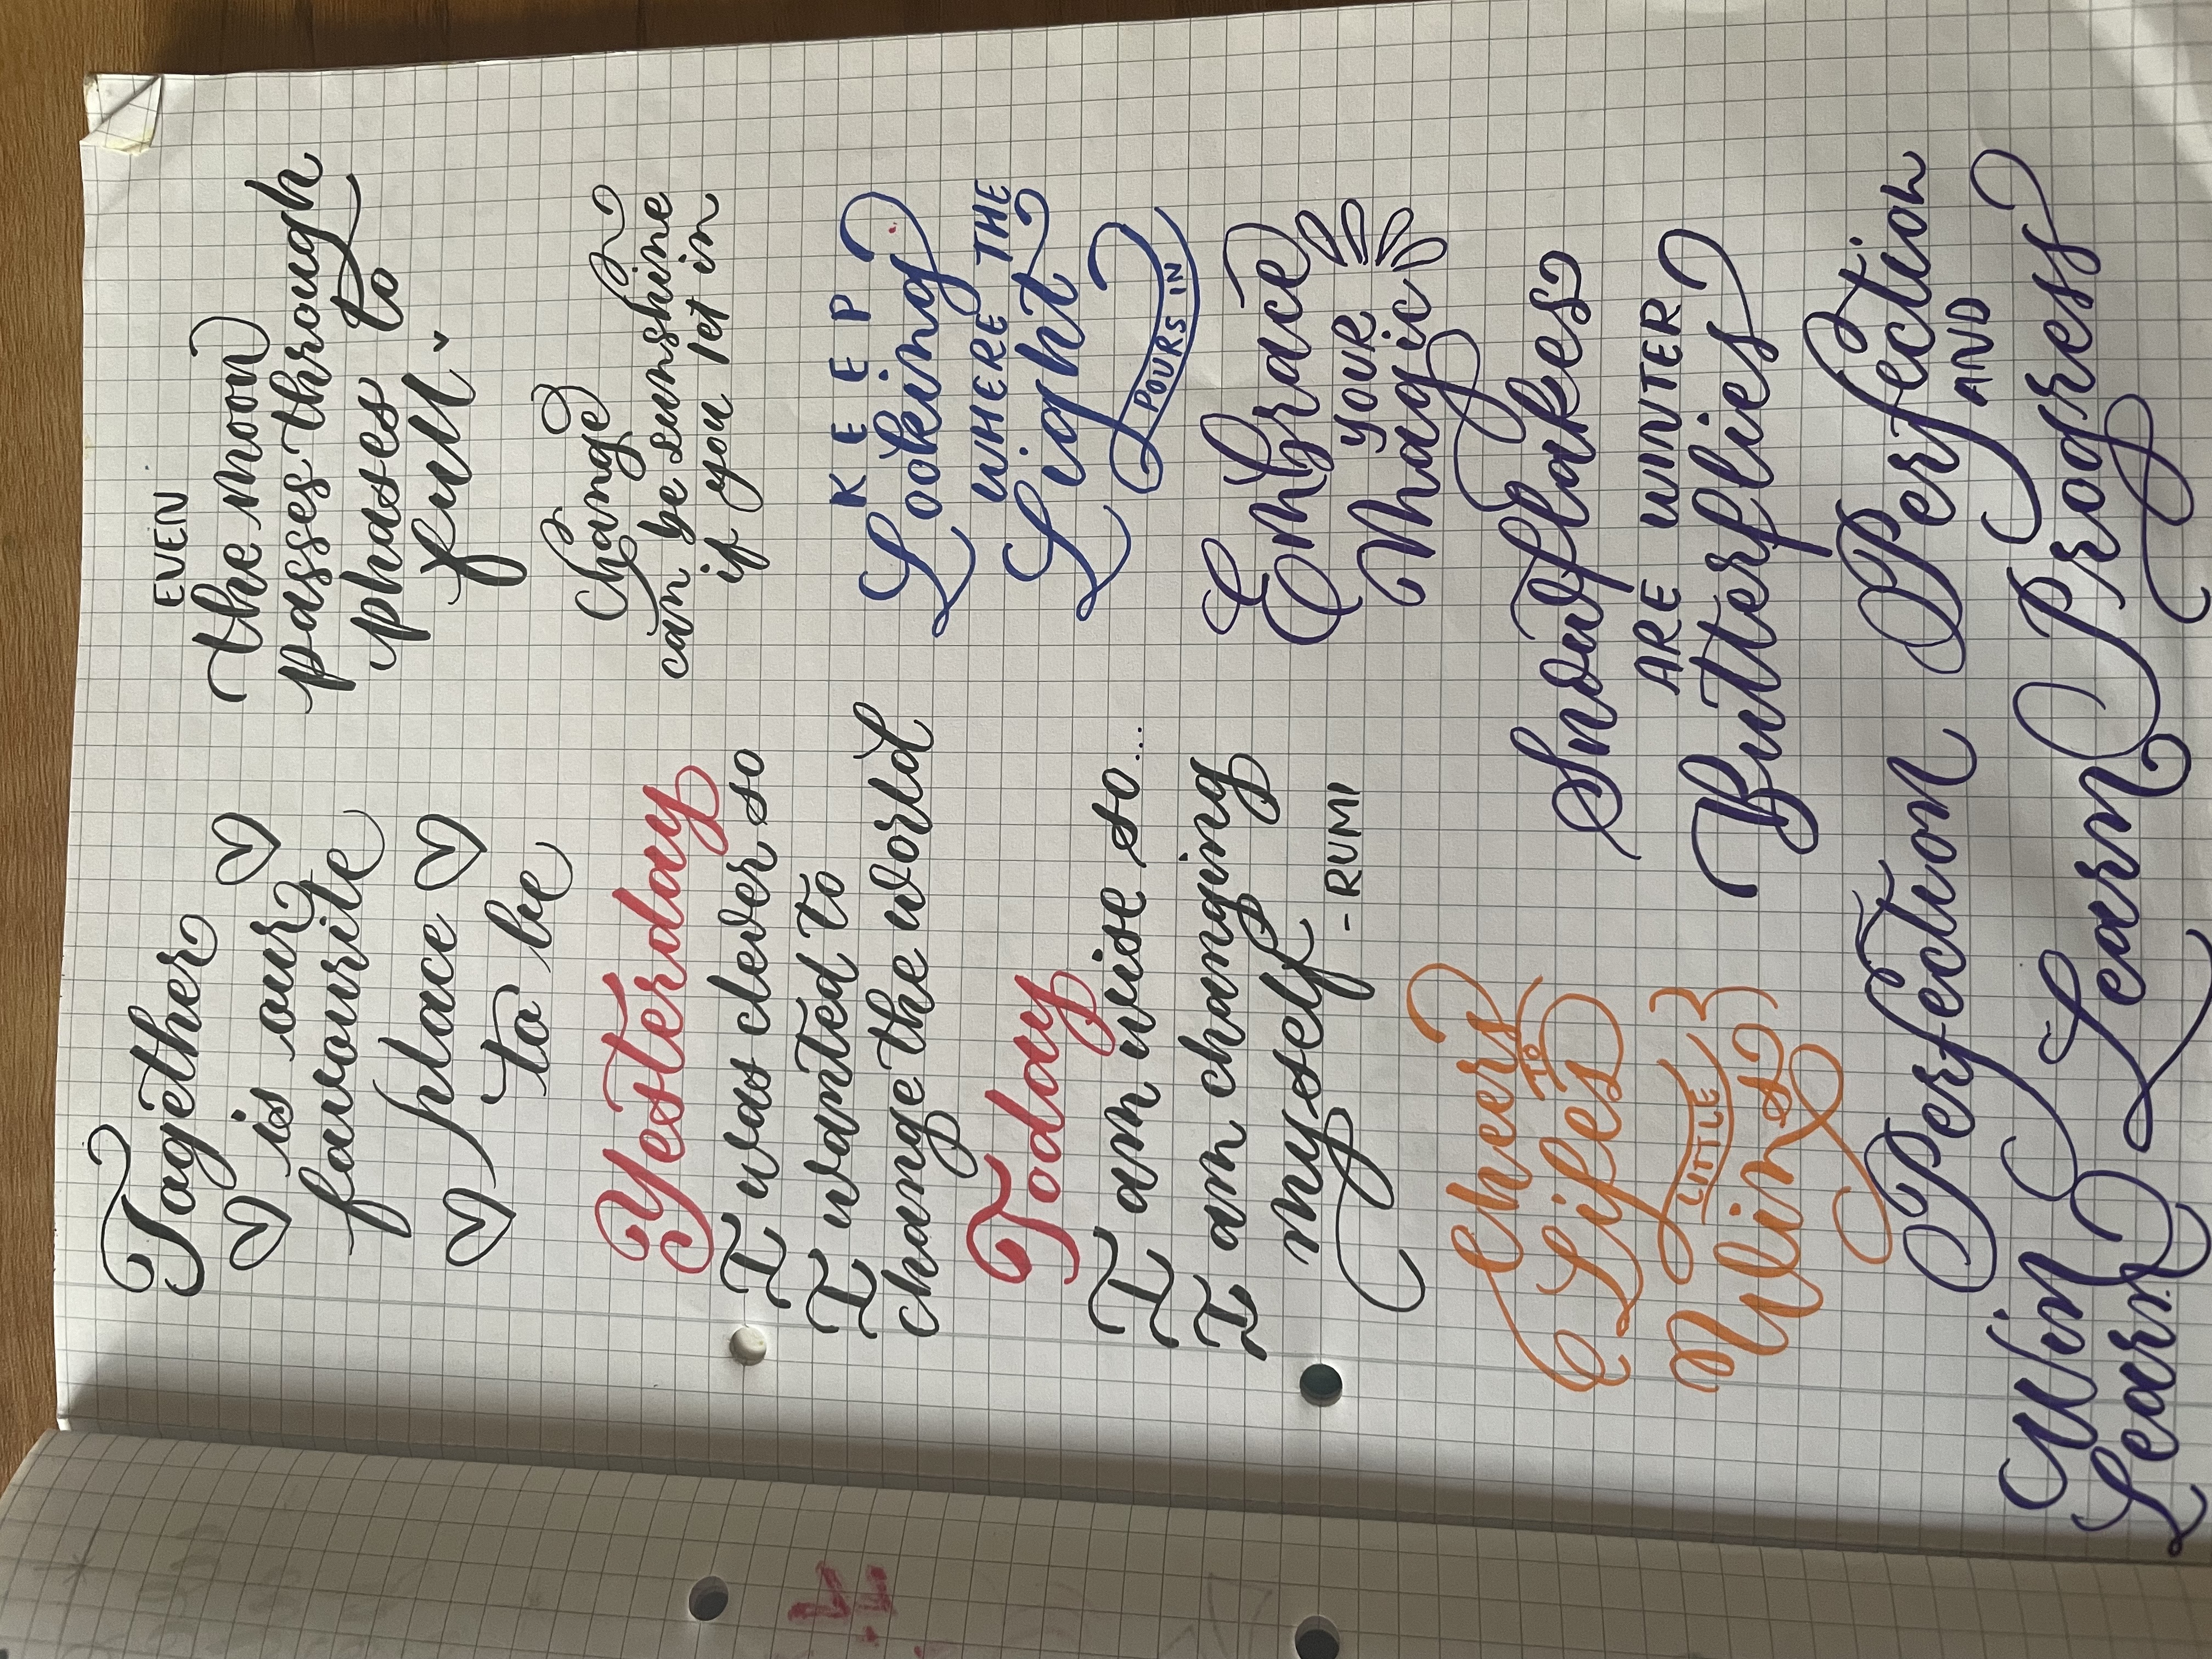 Together
is our
favourite
place
to be
Yesterday
I was clever so
I wanted to
change the world
Today
I am wise so...
I am changing
myself
- RUMI
Cheers
TO
Lifes
LITTLE
Wins
EVEN
the moon
passes through
phases to
full.
Change
can be sunshine
if you let it in
KEEP
Looking
WHERE THE
Light
POURS IN
Embrace
YOUR
Magic
Snowflakes
ARE WINTER
Butterflies
Perfection Perfection
AND
Win Learn Progress
Learn